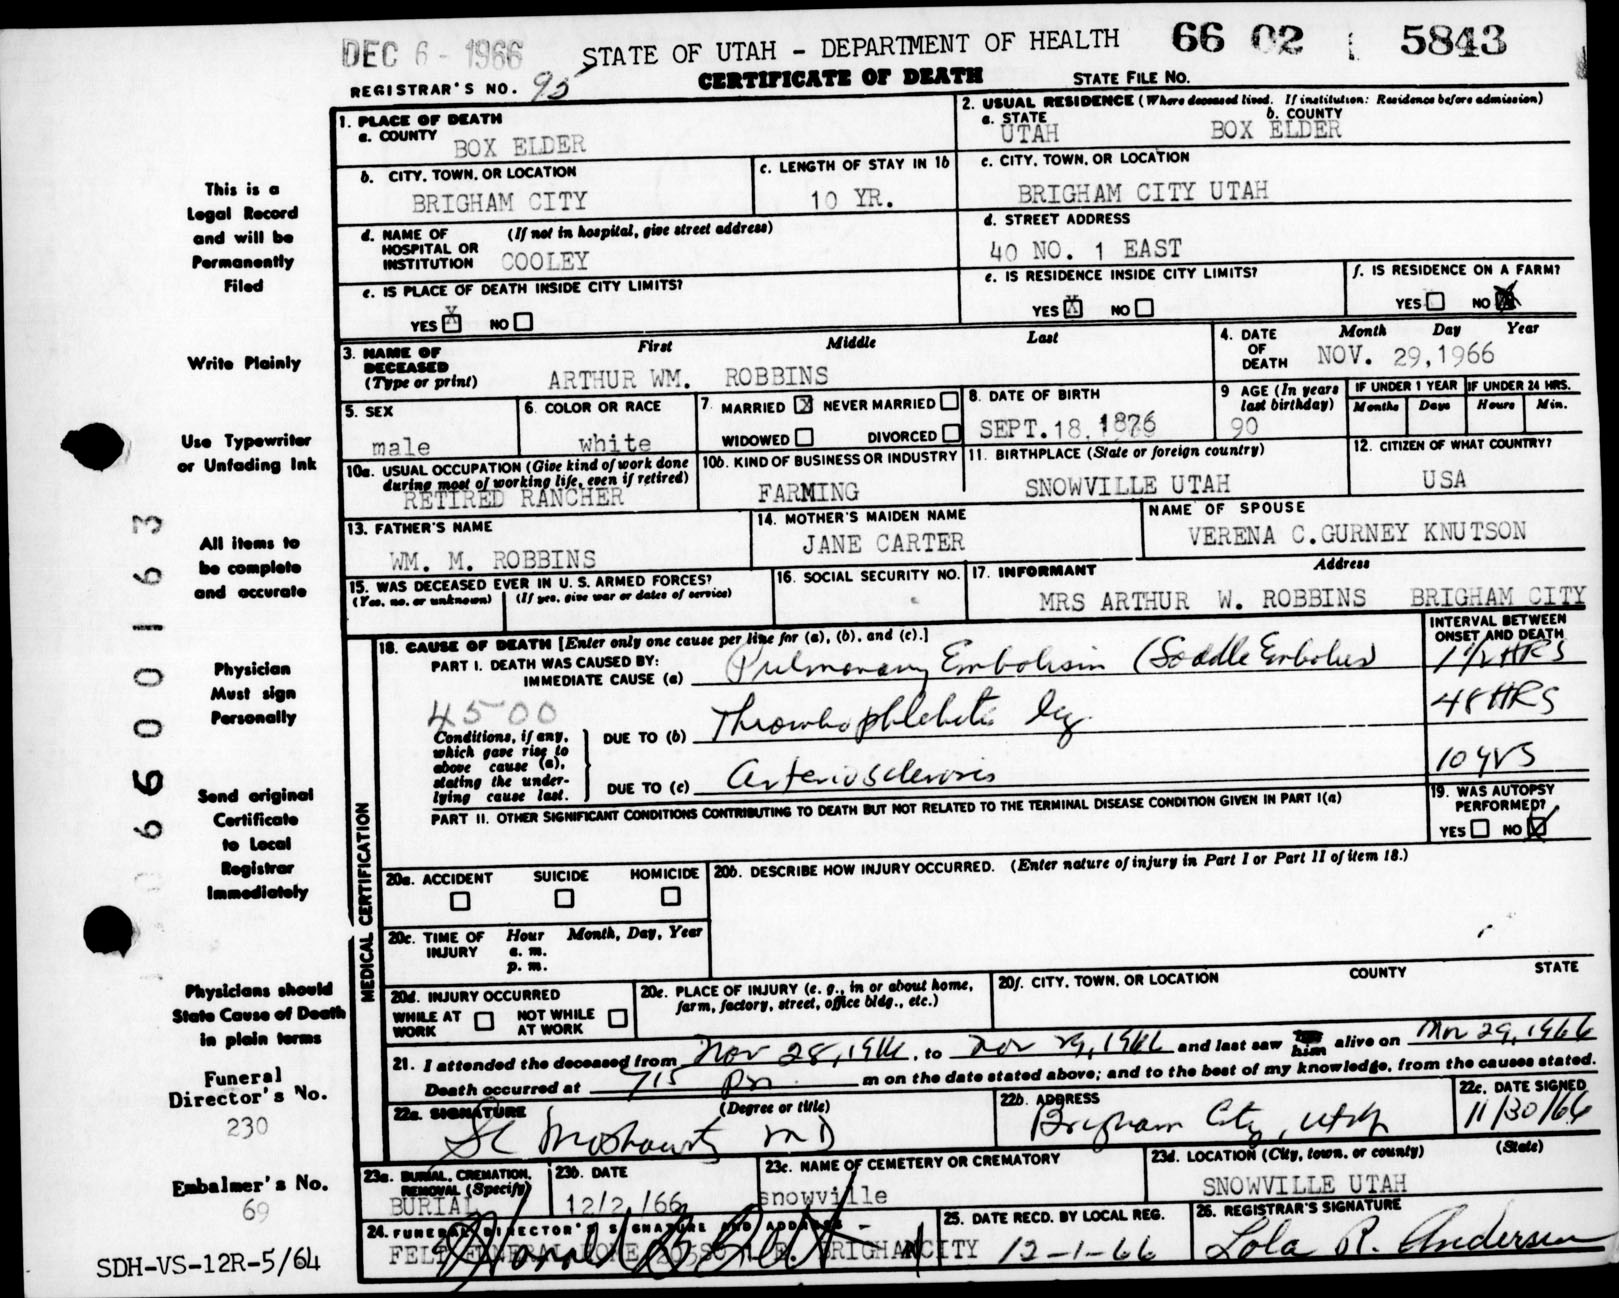 DEC 6 - 1966 STATE OF UTAH - DEPARTMENT OF HEALTH 66 02 5843
REGISTRAR'S NO. 95 CERTIFICATE OF DEATH STATE FILE NO.
1. PLACE OF DEATH
a. COUNTY
BOX ELDER
2. USUAL RESIDENCE (Where deceased lived. If institution: Residence before admission)
a. STATE b. COUNTY
UTAH BOX ELDER
b. CITY, TOWN, OR LOCATION
BRIGHAM CITY
c. LENGTH OF STAY IN 1b
10 YR.
c. CITY, TOWN, OR LOCATION
BRIGHAM CITY UTAH
d. NAME OF (If not in hospital, give street address)
HOSPITAL OR
INSTITUTION COOLEY
d. STREET ADDRESS
40 NO. 1 EAST
e. IS PLACE OF DEATH INSIDE CITY LIMITS?
YES X NO
e. IS RESIDENCE INSIDE CITY LIMITS?
YES X NO
f. IS RESIDENCE ON A FARM?
YES NO X
3. NAME OF
DECEASED
(Type or print)
First Middle Last
ARTHUR WM. ROBBINS
4. DATE
OF
DEATH
Month Day Year
NOV. 29,1966
5. SEX
male
6. COLOR OR RACE
white
7. MARRIED X NEVER MARRIED
WIDOWED DIVORCED
8. DATE OF BIRTH
SEPT.18,1876
9 AGE (In years
last birthday)
90
IF UNDER 1 YEAR IF UNDER 24 HRS.
Months Days Hours Min.
10a. USUAL OCCUPATION (Give kind of work done
during most of working life, even if retired)
RETIRED RANCHER
10b. KIND OF BUSINESS OR INDUSTRY
FARMING
11. BIRTHPLACE (State or foreign country)
SNOWVILLE UTAH
12. CITIZEN OF WHAT COUNTRY?
USA
13. FATHER'S NAME
WM. M. ROBBINS
14. MOTHER'S MAIDEN NAME
JANE CARTER
NAME OF SPOUSE
VERENA C.GURNEY KNUTSON
15. WAS DECEASED EVER IN U. S. ARMED FORCES?
(Yes, no, or unknown) (If yes, give war or dates of service)
16. SOCIAL SECURITY NO.
17. INFORMANT Address
MRS ARTHUR W. ROBBINS BRIGHAM CITY
MEDICAL CERTIFICATION
18. CAUSE OF DEATH [Enter only one cause per line for (a), (b), and (c).]
PART I. DEATH WAS CAUSED BY:
IMMEDIATE CAUSE (a) Pulmonary Embolism (Saddle Embolus)
INTERVAL BETWEEN
ONSET AND DEATH
1 1/2 HRS
4500
Conditions, if any,
which gave rise to
above cause (a),
stating the under-
lying cause last.
DUE TO (b) Thrombophlebitis leg.
48 HRS
DUE TO (c) Arteriosclerosis
10 yrs
PART II. OTHER SIGNIFICANT CONDITIONS CONTRIBUTING TO DEATH BUT NOT RELATED TO THE TERMINAL DISEASE CONDITION GIVEN IN PART I(a)
19. WAS AUTOPSY
PERFORMED?
YES NO X
20a. ACCIDENT SUICIDE HOMICIDE
20b. DESCRIBE HOW INJURY OCCURRED. (Enter nature of injury in Part I or Part II of item 18.)
20c. TIME OF Hour Month, Day, Year
INJURY a. m.
p. m.
20d. INJURY OCCURRED
WHILE AT NOT WHILE
WORK AT WORK
20e. PLACE OF INJURY (e. g., in or about home,
farm, factory, street, office bldg., etc.)
20f. CITY, TOWN, OR LOCATION COUNTY STATE
21. I attended the deceased from Nov 28, 1966, to Nov 29, 1966 and last saw him alive on Nov 29, 1966
Death occurred at 715 pm m on the date stated above; and to the best of my knowledge, from the causes stated.
22a. SIGNATURE (Degree or title)
MD
22b. ADDRESS
Brigham City, Utah
22c. DATE SIGNED
11/30/66
23a. BURIAL, CREMATION,
REMOVAL (Specify)
BURIAL
23b. DATE
12/2/66
23c. NAME OF CEMETERY OR CREMATORY
snowville
23d. LOCATION (City, town, or county) (State)
SNOWVILLE UTAH
24. FUNERAL DIRECTOR'S SIGNATURE AND ADDRESS
FELT FUNERAL HOME BRIGHAM CITY
25. DATE RECD. BY LOCAL REG.
12-1-66
26. REGISTRAR'S SIGNATURE
Lola R. Andersen
This is a
Legal Record
and will be
Permanently
Filed
Write Plainly
Use Typewriter
or Unfading Ink
All items to
be complete
and accurate
Physician
Must sign
Personally
Send original
Certificate
to Local
Registrar
Immediately
Physicians should
State Cause of Death
in plain terms
Funeral
Director's No.
230
Embalmer's No.
69
SDH-VS-12R-5/64
066600163